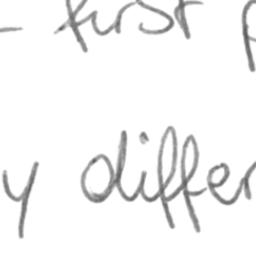 - first
y differ